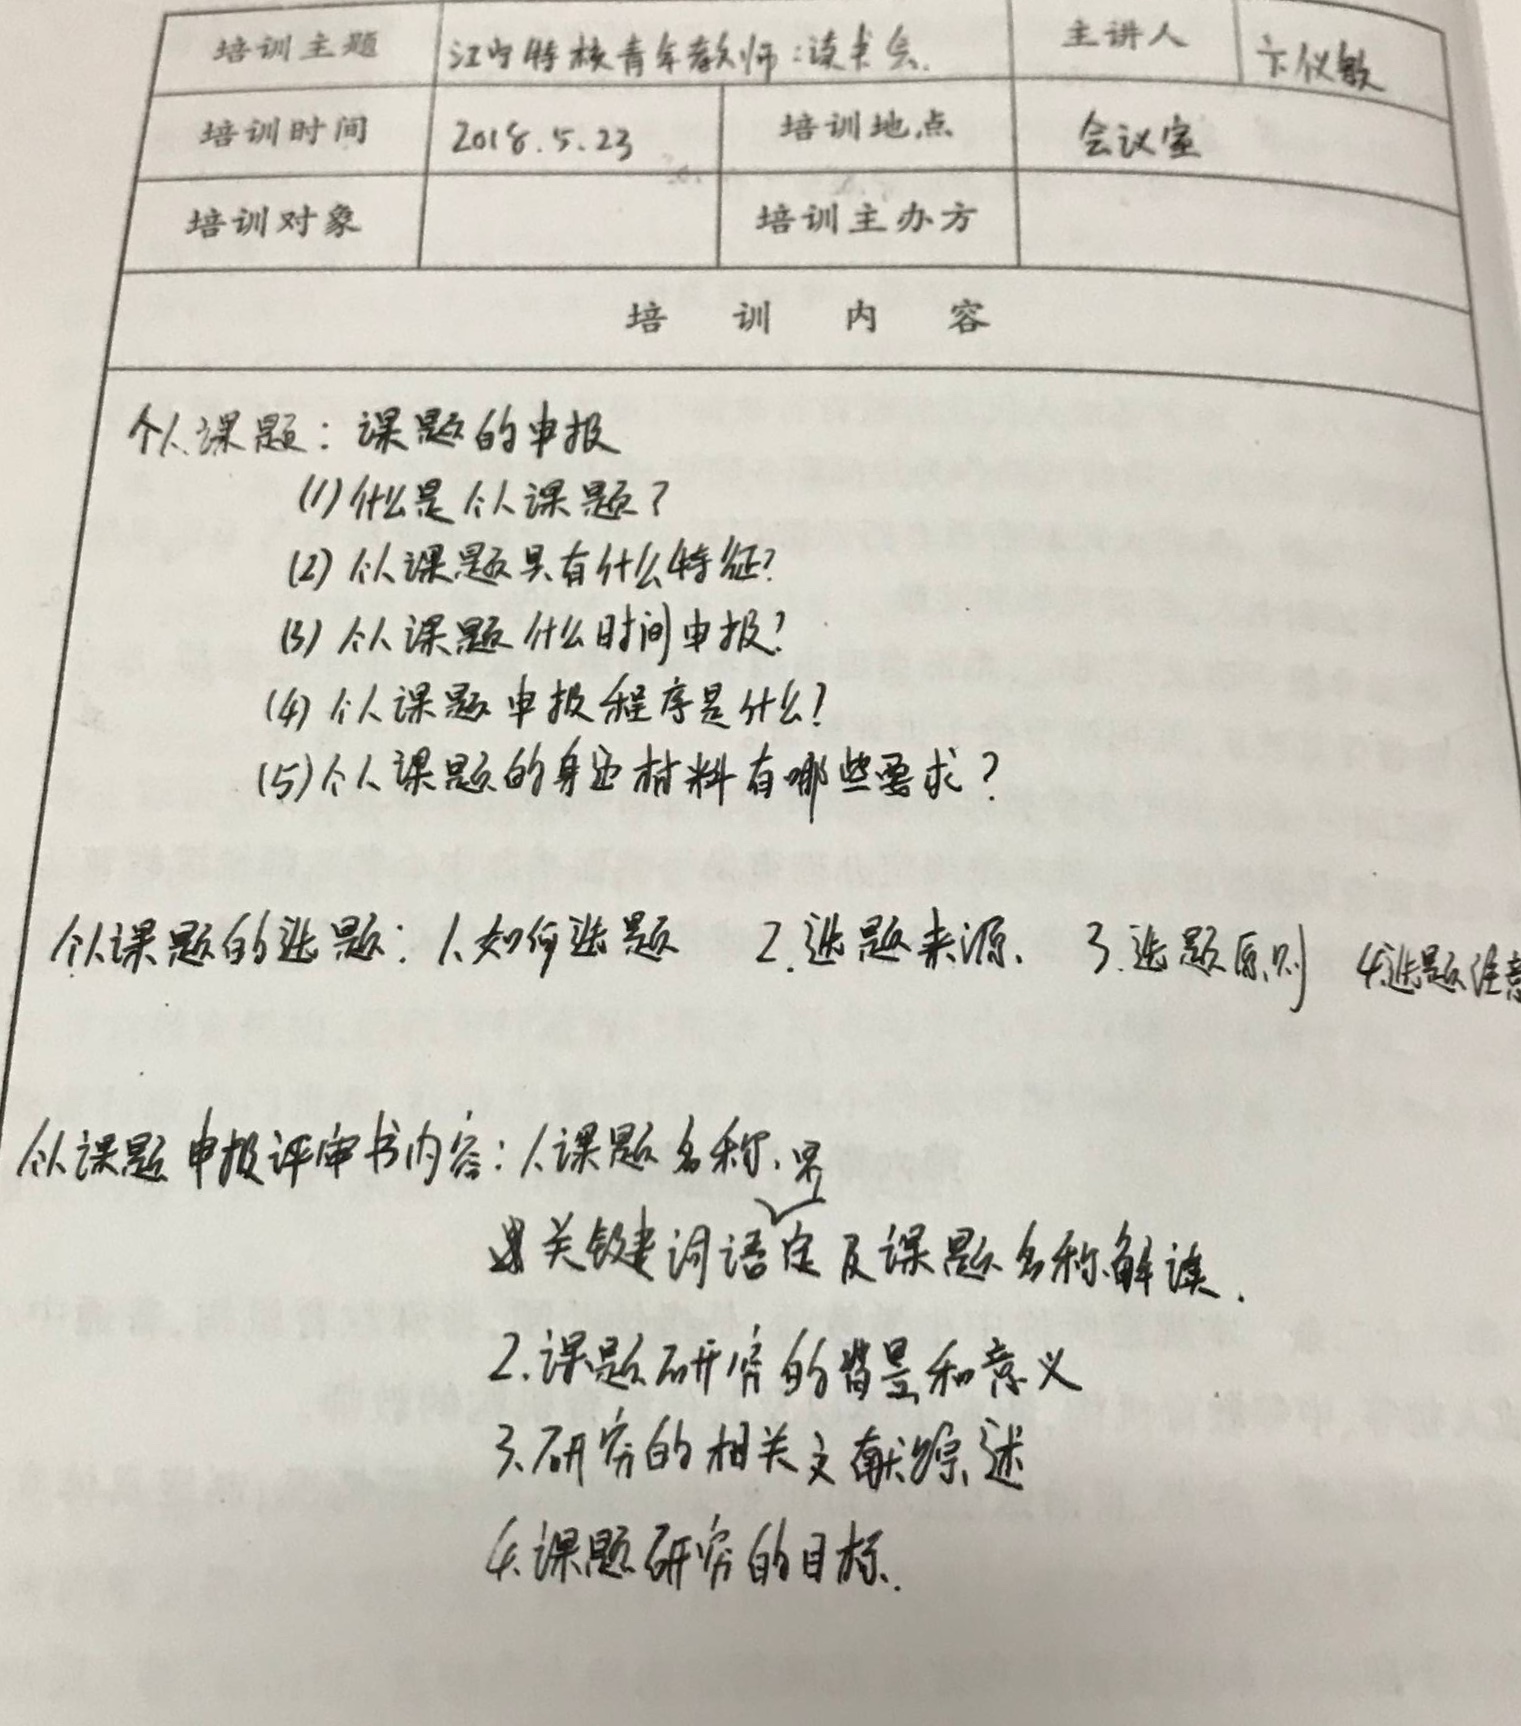 培训主题 江宁特校青年教师:读书会. 主讲人 卞仪敏
培训时间 2018.5.23 培训地点 会议室
培训对象 培训主办方
培训内容
个人课题:课题的申报
(1)什么是个人课题?
(2)个人课题具有什么特征?
(3)个人课题什么时间申报?
(4)个人课题申报程序是什么?
(5)个人课题的身边材料有哪些要求?
个人课题的选题:1.如何选题 2.选题来源. 3.选题原则 4.选题注意
个人课题申报评审书内容:1.课题名称.
关键词语界定及课题名称解读.
2.课题研究的背景和意义
3.研究的相关文献综述
4.课题研究的目标.